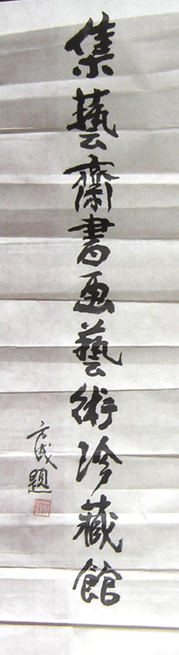 集藝齋書画藝術珍藏館
方成題